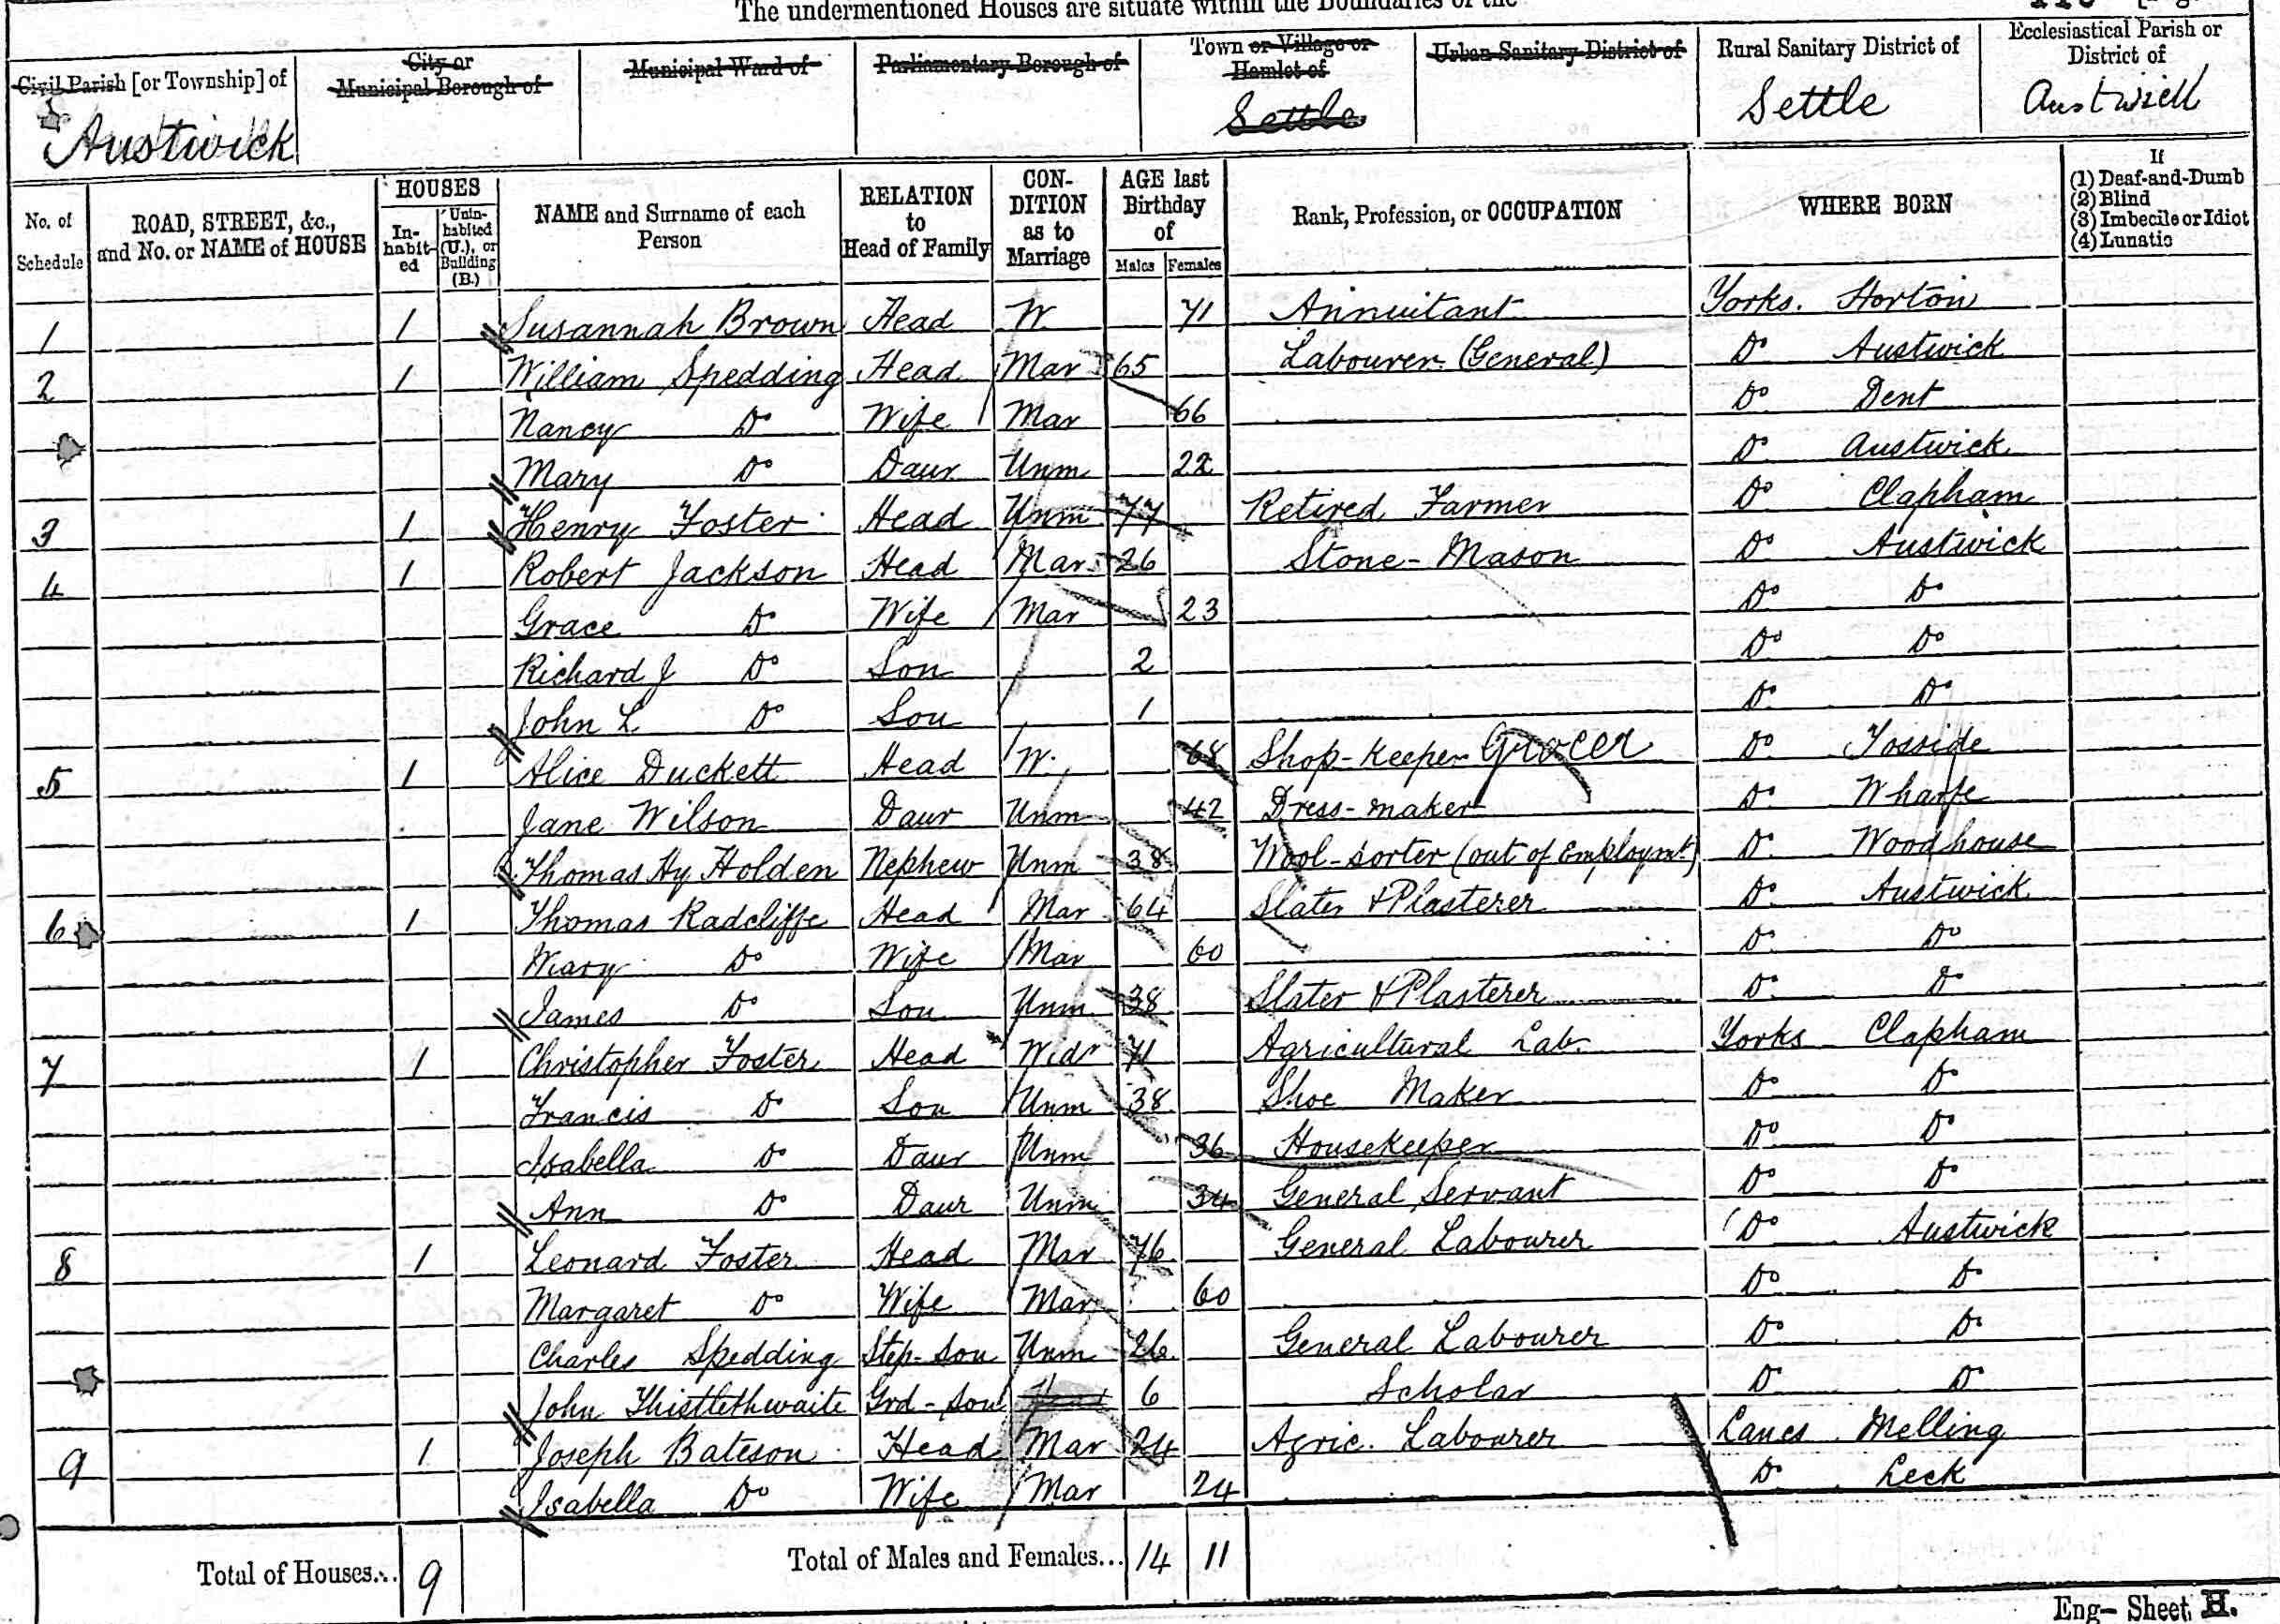 The undermentioned Houses are situate within the Boundaries of the
Civil Parish [or Township] of City or Municipal Borough of Municipal Ward of Parliamentary Borough of Town or Village or Hamlet of Urban Sanitary District of Rural Sanitary District of Ecclesiastical Parish or District of
Austwick Settle Settle Austwick
No. of Schedule ROAD, STREET, &c., and No. or NAME of HOUSE HOUSES In-habit-ed Unin-habited (U.), or Building (B.) NAME and Surname of each Person RELATION to Head of Family CON-DITION as to Marriage AGE last Birthday of Males Females Rank, Profession, or OCCUPATION WHERE BORN If (1) Deaf-and-Dumb (2) Blind (3) Imbecile or Idiot (4) Lunatic
1 1 Susannah Brown Head W. 71 Annuitant Yorks. Horton
2 1 William Spedding Head Mar 65 Labourer (General) Do Austwick
Nancy Do Wife Mar 66 Do Dent
Mary Do Daur Unm 22 Do Austwick
3 1 Henry Foster Head Unm 77 Retired Farmer Do Clapham
4 1 Robert Jackson Head Mar 26 Stone-Mason Do Austwick
Grace Do Wife Mar 23 Do Do
Richard J Do Son 2 Do Do
John L Do Son 1 Do Do
5 1 Alice Duckett Head W. 68 Shop-keeper Grocer Do Tosside
Jane Wilson Daur Unm 42 Dress-maker Do Wharfe
Thomas Hy Holden Nephew Unm 38 Wool-sorter (out of Employmt.) Do Woodhouse
6 1 Thomas Radcliffe Head Mar 64 Slater & Plasterer Do Austwick
Mary Do Wife Mar 60 Do Do
James Do Son Unm 38 Slater & Plasterer Do Do
7 1 Christopher Foster Head Widr 71 Agricultural Lab. Yorks Clapham
Francis Do Son Unm 38 Shoe Maker Do Do
Isabella Do Daur Unm 36 Housekeeper Do Do
Ann Do Daur Unm 34 General Servant Do Do
8 1 Leonard Foster Head Mar 76 General Labourer Do Austwick
Margaret Do Wife Mar 60 Do Do
Charles Spedding Step-Son Unm 26 General Labourer Do Do
John Thistlethwaite Grd-Son 6 Scholar Do Do
9 1 Joseph Bateson Head Mar 24 Agric. Labourer Lancs Melling
Isabella Do Wife Mar 24 Do Leck
Total of Houses... 9 Total of Males and Females... 14 11
Eng- Sheet H.